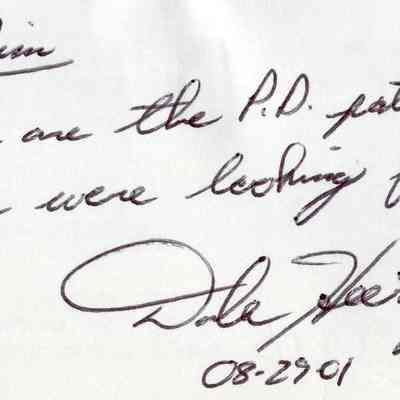 Jim
are the P.D. pat
were looking f
Dale Hei
08-29-01